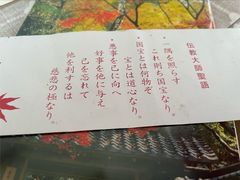 伝教大師聖語
・一隅を照らす
これ則ち国宝なり
・国宝とは何物ぞ
宝とは道心なり
・悪事を己に向へ
好事を他に与え
己を忘れて
他を利するは
慈悲の極なり